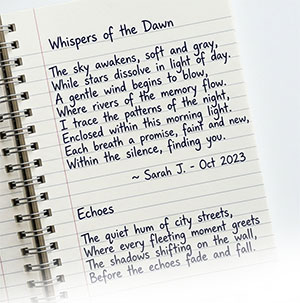 Whispers of the Dawn
The sky awakens, soft and gray,
While stars dissolve in light of day.
A gentle wind begins to blow,
Where rivers of the memory flow.
I trace the patterns of the night,
Enclosed within this morning light.
Each breath a promise, faint and new,
Within the silence, finding you.
~ Sarah J. - Oct 2023
Echoes
The quiet hum of city streets,
Where every fleeting moment greets
The shadows shifting on the wall,
Before the echoes fade and fall.